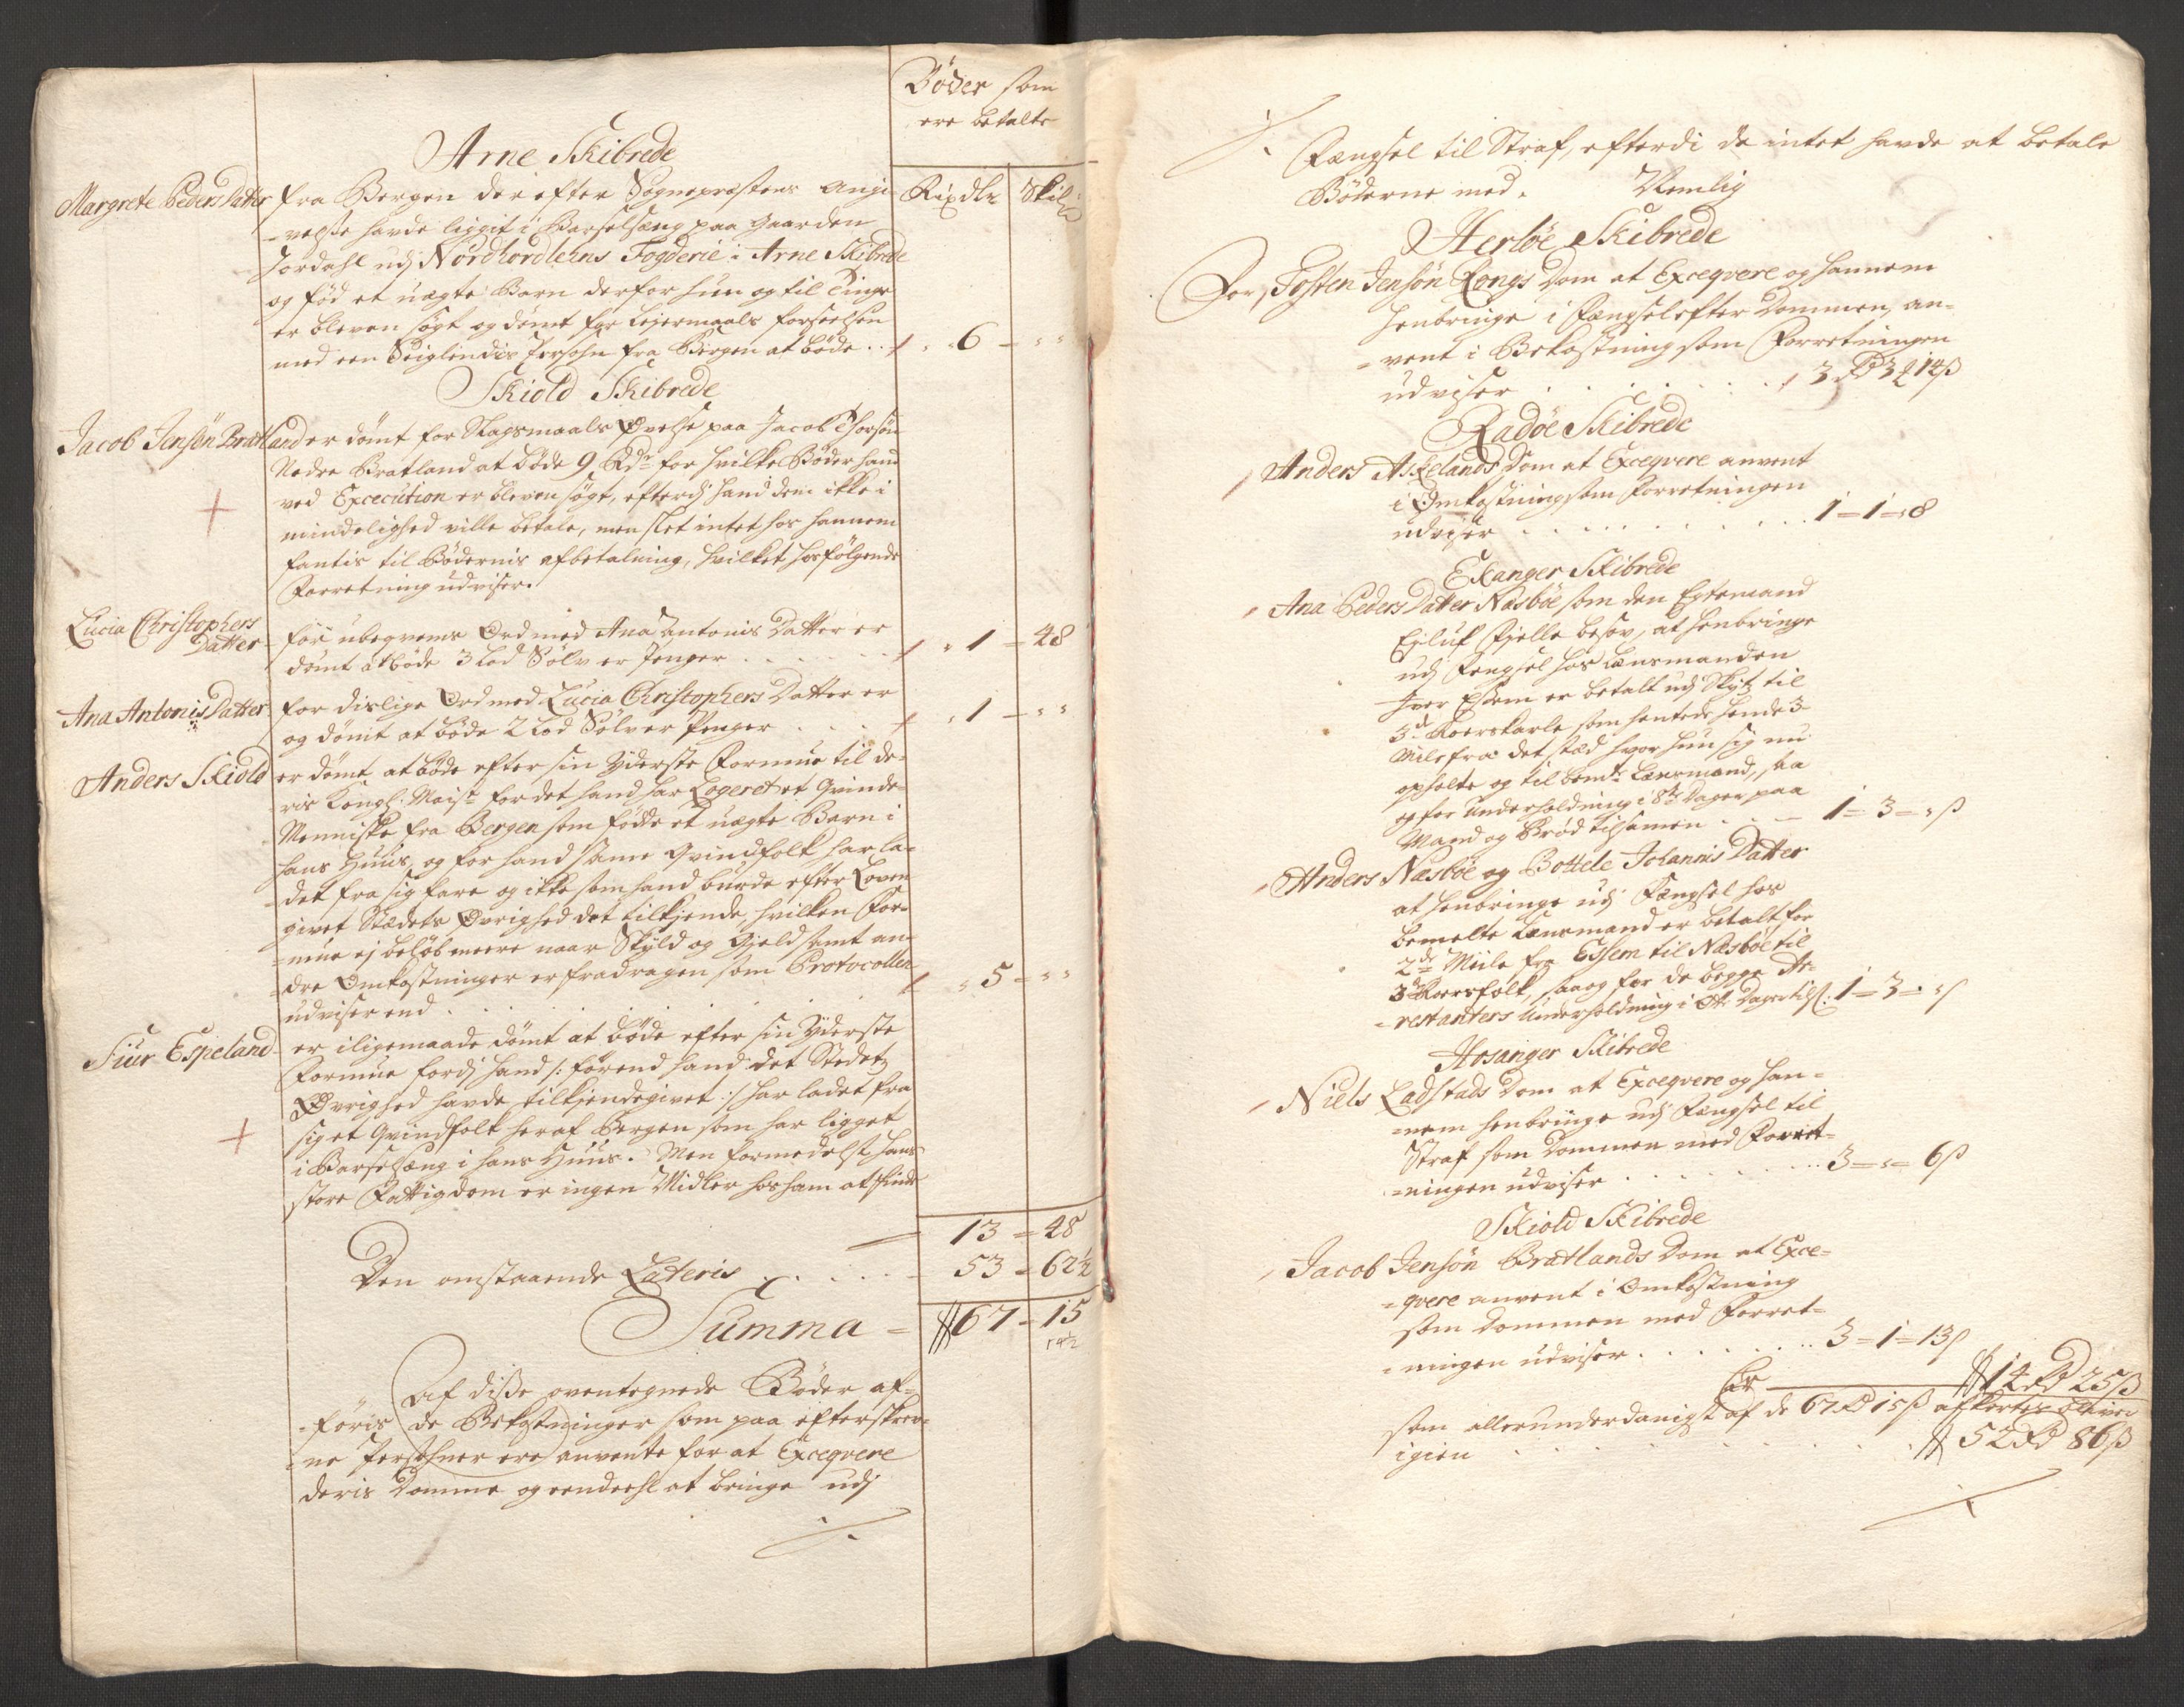 Böder som
ere betalte
Rixdlr Skil
Arne Skibrede
Margrete Peders Datter fra Bergen der efter Sognepræstens angi-
-velse hafde liggit i Barselseng paa Gaarden
Jordahl udj Nordhordlehns Fogderie i Arne Skibrede
og fød et uægte Barn derfor hun og til Tinge
er bleven søgt og dömt for Lejermaals forseelsen
med een Person fra Bergen at böde .. 6 - " "
Skiold Skibrede
Jacob Jensön Bratland er dömt for Slagsmaals Øvelse paa Jacob Thorsön
Nedre Bratland at böde 9 Rdr for hvilke Böder hand
ved Excecution er bleven søgt, efterdj hand dem ikke i
mindelighed ville betale, men slet intet hos hannem
fantis til Bödernis afbetalning, hvilket hosfølgende
Forretning udviser.
Lucia Christophers
Datter for ubeqvems Ord med Ana Antonis Datter er
dömt at böde 3 Lod Sölv er Penger . . . . " 1 - 48
Ana Antonis Datter for dislige Ord med Lucia Christophers Datter er
og dömt at böde 2 Lod Sölv er Penger . . . " 1 - " "
Anders Skiold er dömt at böde efter sin Yderste Formue til de-
ris Kongl. Maist for det hand har Logeret et Qvinde-
Menniske fra Bergen som födde et uægte Barn i
hans Huus, og for hand samme Qvindfolk har la-
-det fra sig fare og ikke som hand burde efter Loven
givet Stædets Øvrighed det tilkiende, hvilken For-
-mue ej belöb meere naar Skyld og Gjeld samt an-
-dre Omkostninger er fradragen som Protocollen
udviser end . . . . . . " 5 - " "
Siur Espeland er iligemaade dömt at böde efter sin Yderste
Formue fordj hand /: förend hand det Stedetz
Øvrighed havde tilkjendegivet :/ har ladet fra
sig et Qvindfolk her af Bergen som har ligget
i Barselseng i hans Huus. Men formedelst hans
store Fattigdom er ingen Midler hos ham at finde
13 - 48
Den omstaaende Lateris . . . . . 53 - 62½
Summa - 67 - 15
14½
Af disse oventegnede Böder af-
-föris de Bekostninger som paa efterskrev-
-ne Persohner ere anvente for at Exceqvere
deris Domme og eendeehl at bringe udj
Fængsel til Straf, efterdi de intet havde at betale
Böderne med. Nemlig
Herlöe Skibrede
For Tosten Jensön Rongs Dom at Exceqvere og hannem
henbringe i Fængsel efter Dommen, an-
-vent i Bekostning som Forretningen
udviser . . . . . . . 3 Rd 3 ₰ 14 ß
Radöe Skibrede
Anders Askelands Dom at Exceqvere anvent
i Omkostning som Forretningen
udviser . . . . . . . . . 1 - 1 - 8
Ekanger Skibrede
Ana Peders Datter Næsböe som den Egtemand
Ejluf Fjelle besov, at henbringe
udj Fengsel hos Lænsmanden
Iver Essem er betalt udj Skytz til
3de Roerskarle som hentede hende 3
Mile fra det stæd hvor hun sig nu
opholte og til bemte Lænsmand, saa
og for Underholdning i 8te Dager paa
Mand og Bröd tilsamen . . . - 1 - 3 - " ß
Anders Næsböe og Bottele Johannis Datter
at henbringe udj Fængsel hos
bemelte Lænsmand er betalt for
2de Miile fra Essem til Næsböe til
3de Roersfolk, saa og for de begge Ar-
-restanters Underholdning i 8te Dage tils: 1 - 3 - " ß
Hosanger Skibrede
Niels Ladstads Dom at Exceqvere og han-
-nem henbringe udj Fængsel til
Straf som Dommen med Forret-
-ningen udviser . . . . . . . 3 - " - 6 ß
Skiold Skibrede
Jacob Jensön Bratlands Dom at Exce-
-qvere anvent i Omkostning
som Dommen med Forret-
-ningen udviser . . . . . . . 3 - 1 - 13 ß
Er 14 Rd 25 ß
som allerunderdanigst af de 67 Rd 15 ß afkortis bliver
igien . . . . . . . . . 52 Rd 86 ß